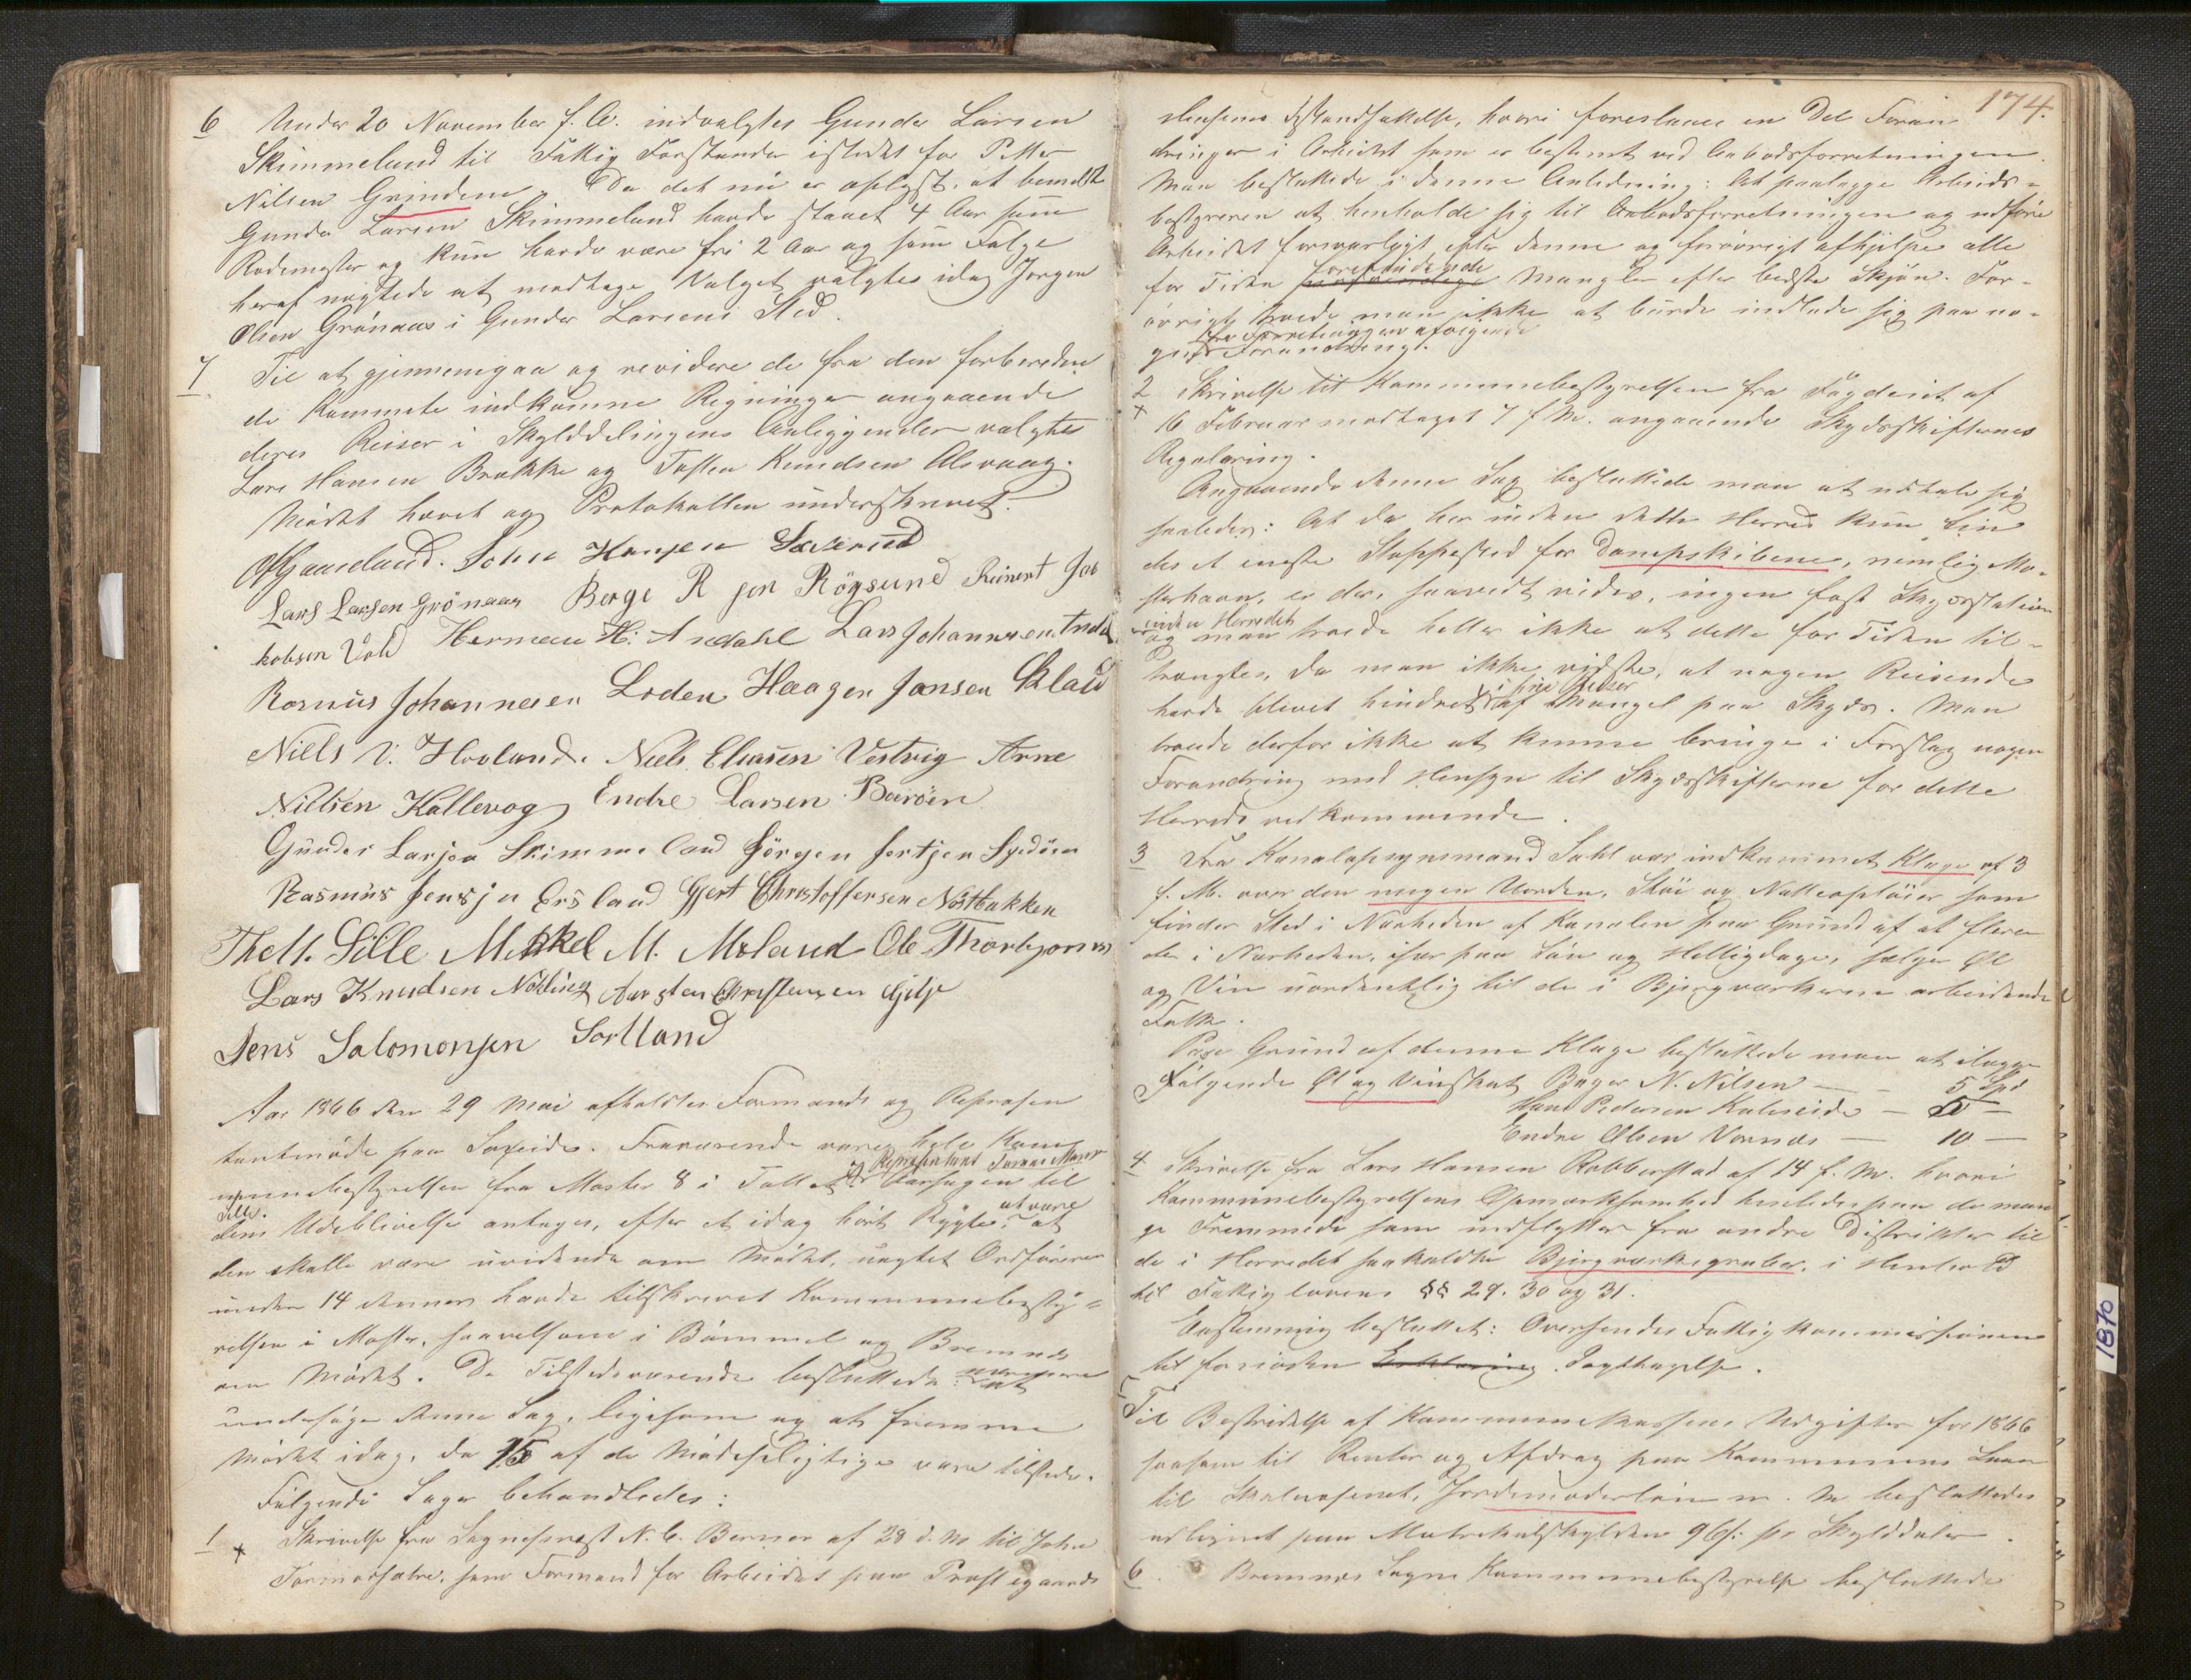 6 Under 20 November f. A. indvalgtes Gunder Larsen
Skimmeland til Fattig Forstander istedet for Petter
Nilsen Grindene. Da det nu er oplyst, at bemeldte
Gunder Larsen Skimmeland havde staaet 4 Aar som
Rodemester og kun havde være fri 2 Aar og som Følge
heraf nægtede at modtage Valget valgtes idag Jørgen
Olsen Grönaas i Gunder Larsens Sted.
7 Til at gjennemgaa og revidere de fra den forbereden
de Kommite indkomne Regninger angaaende
deres Reiser i Skylddelingens Anliggender valgtes
Lars Hansen Brakke og Tosten Knudsen Alsvaag.
Mödet hævet og Protokollen underskrevet.
John Hansen
Lars Larsen Grönaas Berge R sen Rögsund Reinert Jac
kobsen Vold Herman H. Andahl Lars Johannesen
Rasmus Johannesen Loden Haagen Jansen
Niels N. Hovland. Niels Eliasen Vestvig Arne
Nilsen Kallevog Endre Larsen Baröen
Gunder Larsen Skimmeland Jörgen
Rasmus Jensen Ersland Gjert Christoffersen Nöstbakken
Th. M. Lille Mikkel M. Moland Ole Thorbjörnsen
Lars Knudsen Nödling
Jens Salomonsen Sortland
Aar 1866 den 29 Mai afholdtes Formands og Repræsen
tantmöde paa Soxeide. Fraværende vare hele Kom
og Repræsentant
munebestyrelsen fra Moster 8 i Tallet. Aarsagen til
at være
deres Udeblivelse antages, efter et idag hört Rygte, at
den skulle være uvidende om Mödet, uagtet Ordföreren
inden 14 dennes havde tilskrevet Kommunebesty=
relsen i Moster, saavelsom i Bömmel og Bremnes
om Mödet. De Tilstedeværende besluttede at
undersöge denne Sag, ligesom og at fremme
Mödet idag, da 15 af de Mödepligtige vare tilstede.
Fölgende Sager behandledes:
1 Skrivelse fra Sognepræst N. C. Berner af 28 d. M. til John
som Formand for Arbeidet paa Præstegaards
174.
husenes Istandsættelse, hvori foreslaaes en Del Foran
dringer i Arbeidet som er bestemt ved Anbudsforretningen.
Man besluttede i denne Anledning: At paalægge Arbeids-
bestyreren at henholde sig til Anbudsforretningen og udföre
Arbeidet forsvarligt efter denne og forövrigt afhjelpe alle
forefindende
for Tiden Mangler efter bedste Skjön. For-
övrigt troede man ikke at burde indlade sig paa no-
fra Forretningen afvigende
gen Forandring.
2 Skrivelse til Kommunebestyrelsen fra Fogderiet af
16 Februar modtaget 7 f. M. angaaende Skydsskifternes
Regulering.
Angaaende denne Sag besluttede man at udtale sig
saaledes: At da her inden dette Herred kun fin
des et eneste Stoppested for Dampskibene, nemlig Mo-
sterhavn, er der, saavidt vides, ingen fast Skydsstation
inden Herredet
og man troede heller ikke at dette for Tiden til-
trængtes, da man ikke vidste, at nogen Reisende
i sine Reiser
havde blevet hindret af Mangel paa Skyds. Man
troede derfor ikke at kunne bringe i Forslag nogen
Forandring med Hensyn til Skydsskifterne for dette
Herreds vedkommende.
3 Fra Kanalopsynsmand Dahl var indkommet Klage af 3
f. M. over den megen Uorden, Stöi og Natteoptöier som
finder Sted i Nærheden af Kanalen paa Grund af at flere
der i Nærheden, især paa Sön og Helligdage, sælger Øl
og Vin uordentlig til de i Bjergværkerne arbeidende
Folk.
Paa Grund af denne Klage besluttede man at ilægge
Fölgende Øl og Vinskat, Bager N. Nilsen — 5 Spd
Hans Pedersen Kuleseide — 5 —
Endre Olsen Vornæs — 10 —
4 Skrivelse fra Lars Hansen Robberstad af 14 f. M. hvori
Kommunebestyrelsens Opmærksomhed henledes paa de man
ge Fremmede som indflytter fra andre Distrikter til
de i Herredet saakaldte Bjergværksgruber, i Henhold
til Fattiglovens §§ 29. 30 og 31.
Enstemmig besluttet: Oversendes Fattigkommissionen
til fornöden Erklæring. Iagttagelse.
5 Til Bestridelse af Kommunekassens Udgifter for 1866
saasom til Renter og Afdrag paa Kommunens Laan
til Skolevæsenet, Jordemoderlön m. m. besluttedes
udlignet paa Matrikulskylden 96 s. pr Skylddaler.
6. Bremnæs Sogns Kommunebestyrelse besluttede
1870